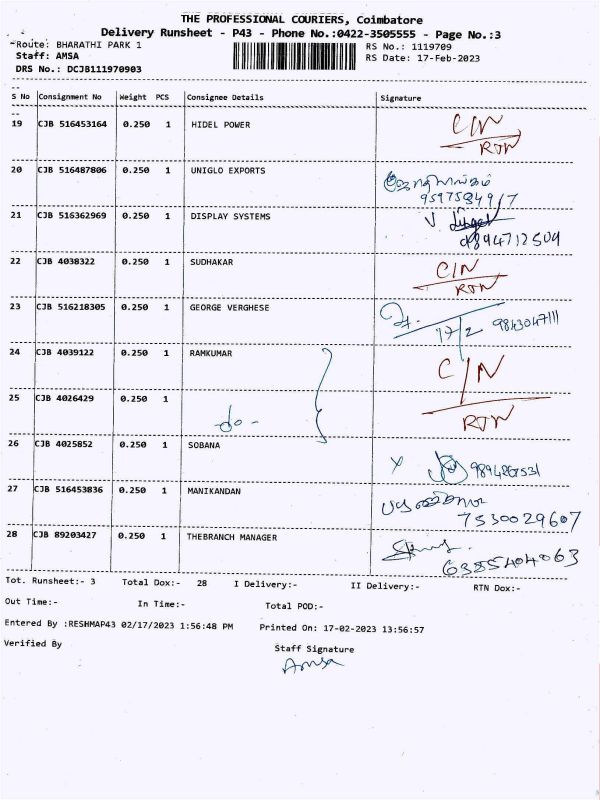 THE PROFESSIONAL COURIERS, Coimbatore
Delivery Runsheet - P43 - Phone No.:0422-3505555 - Page No.:3
Route: BHARATHI PARK 1 RS No.: 1119709
Staff: AMSA RS Date: 17-Feb-2023
DRS No.: DCJB111970903
S No Consignment No Weight PCS Consignee Details Signature
19 CJB 516453164 0.250 1 HIDEL POWER C/N
RTN
20 CJB 516487806 0.250 1 UNIGLO EXPORTS
9597584917
21 CJB 516362969 0.250 1 DISPLAY SYSTEMS V
9894712509
22 CJB 4038322 0.250 1 SUDHAKAR C/N
RTN
23 CJB 516218305 0.250 1 GEORGE VERGHESE
17/2 9843047111
24 CJB 4039122 0.250 1 RAMKUMAR C/N
25 CJB 4026429 0.250 1
do- RTN
26 CJB 4025852 0.250 1 SOBANA X
27 CJB 516453836 0.250 1 MANIKANDAN
7530029607
28 CJB 89203427 0.250 1 THEBRANCH MANAGER
6385404063
Tot. Runsheet:- 3 Total Dox:- 28 I Delivery:- II Delivery:- RTN Dox:-
Out Time:- In Time:- Total POD:-
Entered By :RESHMAP43 02/17/2023 1:56:48 PM Printed On: 17-02-2023 13:56:57
Verified By Staff Signature
Amsa